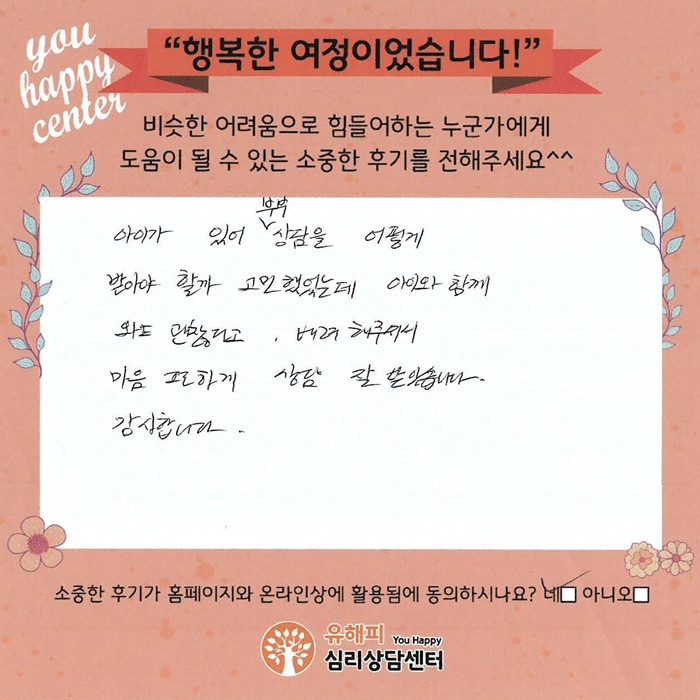 you
happy
center
“행복한 여정이었습니다!”
비슷한 어려움으로 힘들어하는 누군가에게
도움이 될 수 있는 소중한 후기를 전해주세요^^
아이가 있어 부부 상담을 어떻게
받아야 할까 고민했었는데 아이와 함께
와도 괜찮다고 . 배려해주셔서
마음 편하게 상담 잘 받았습니다.
감사합니다.
소중한 후기가 홈페이지와 온라인상에 활용됨에 동의하시나요? 네 아니오
유해피 You Happy
심리상담센터